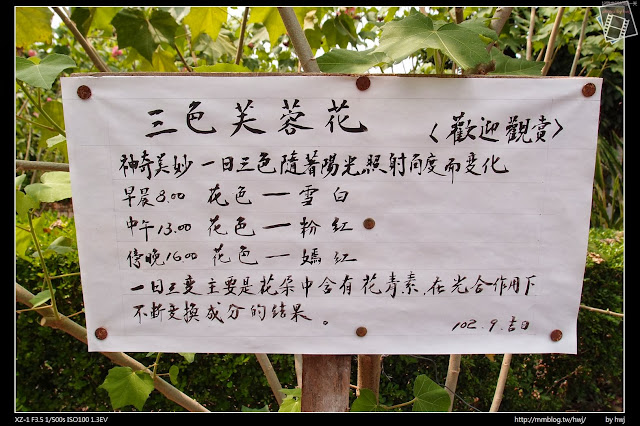 三色芙蓉花
〈歡迎觀賞〉
神奇美妙一日三色隨著陽光照射角度而變化
早晨8.00 花色一雪白
中午13.00 花色一粉紅
傍晚16.00 花色一嫣紅
一日三變主要是花朵中含有花青素,在光合作用下
不斷变換成分的結果。
102.9.吉日
XZ-1 F3.5 1/500s ISO100 1.3EV
http://mmblog.tw/hwj/ by hwj